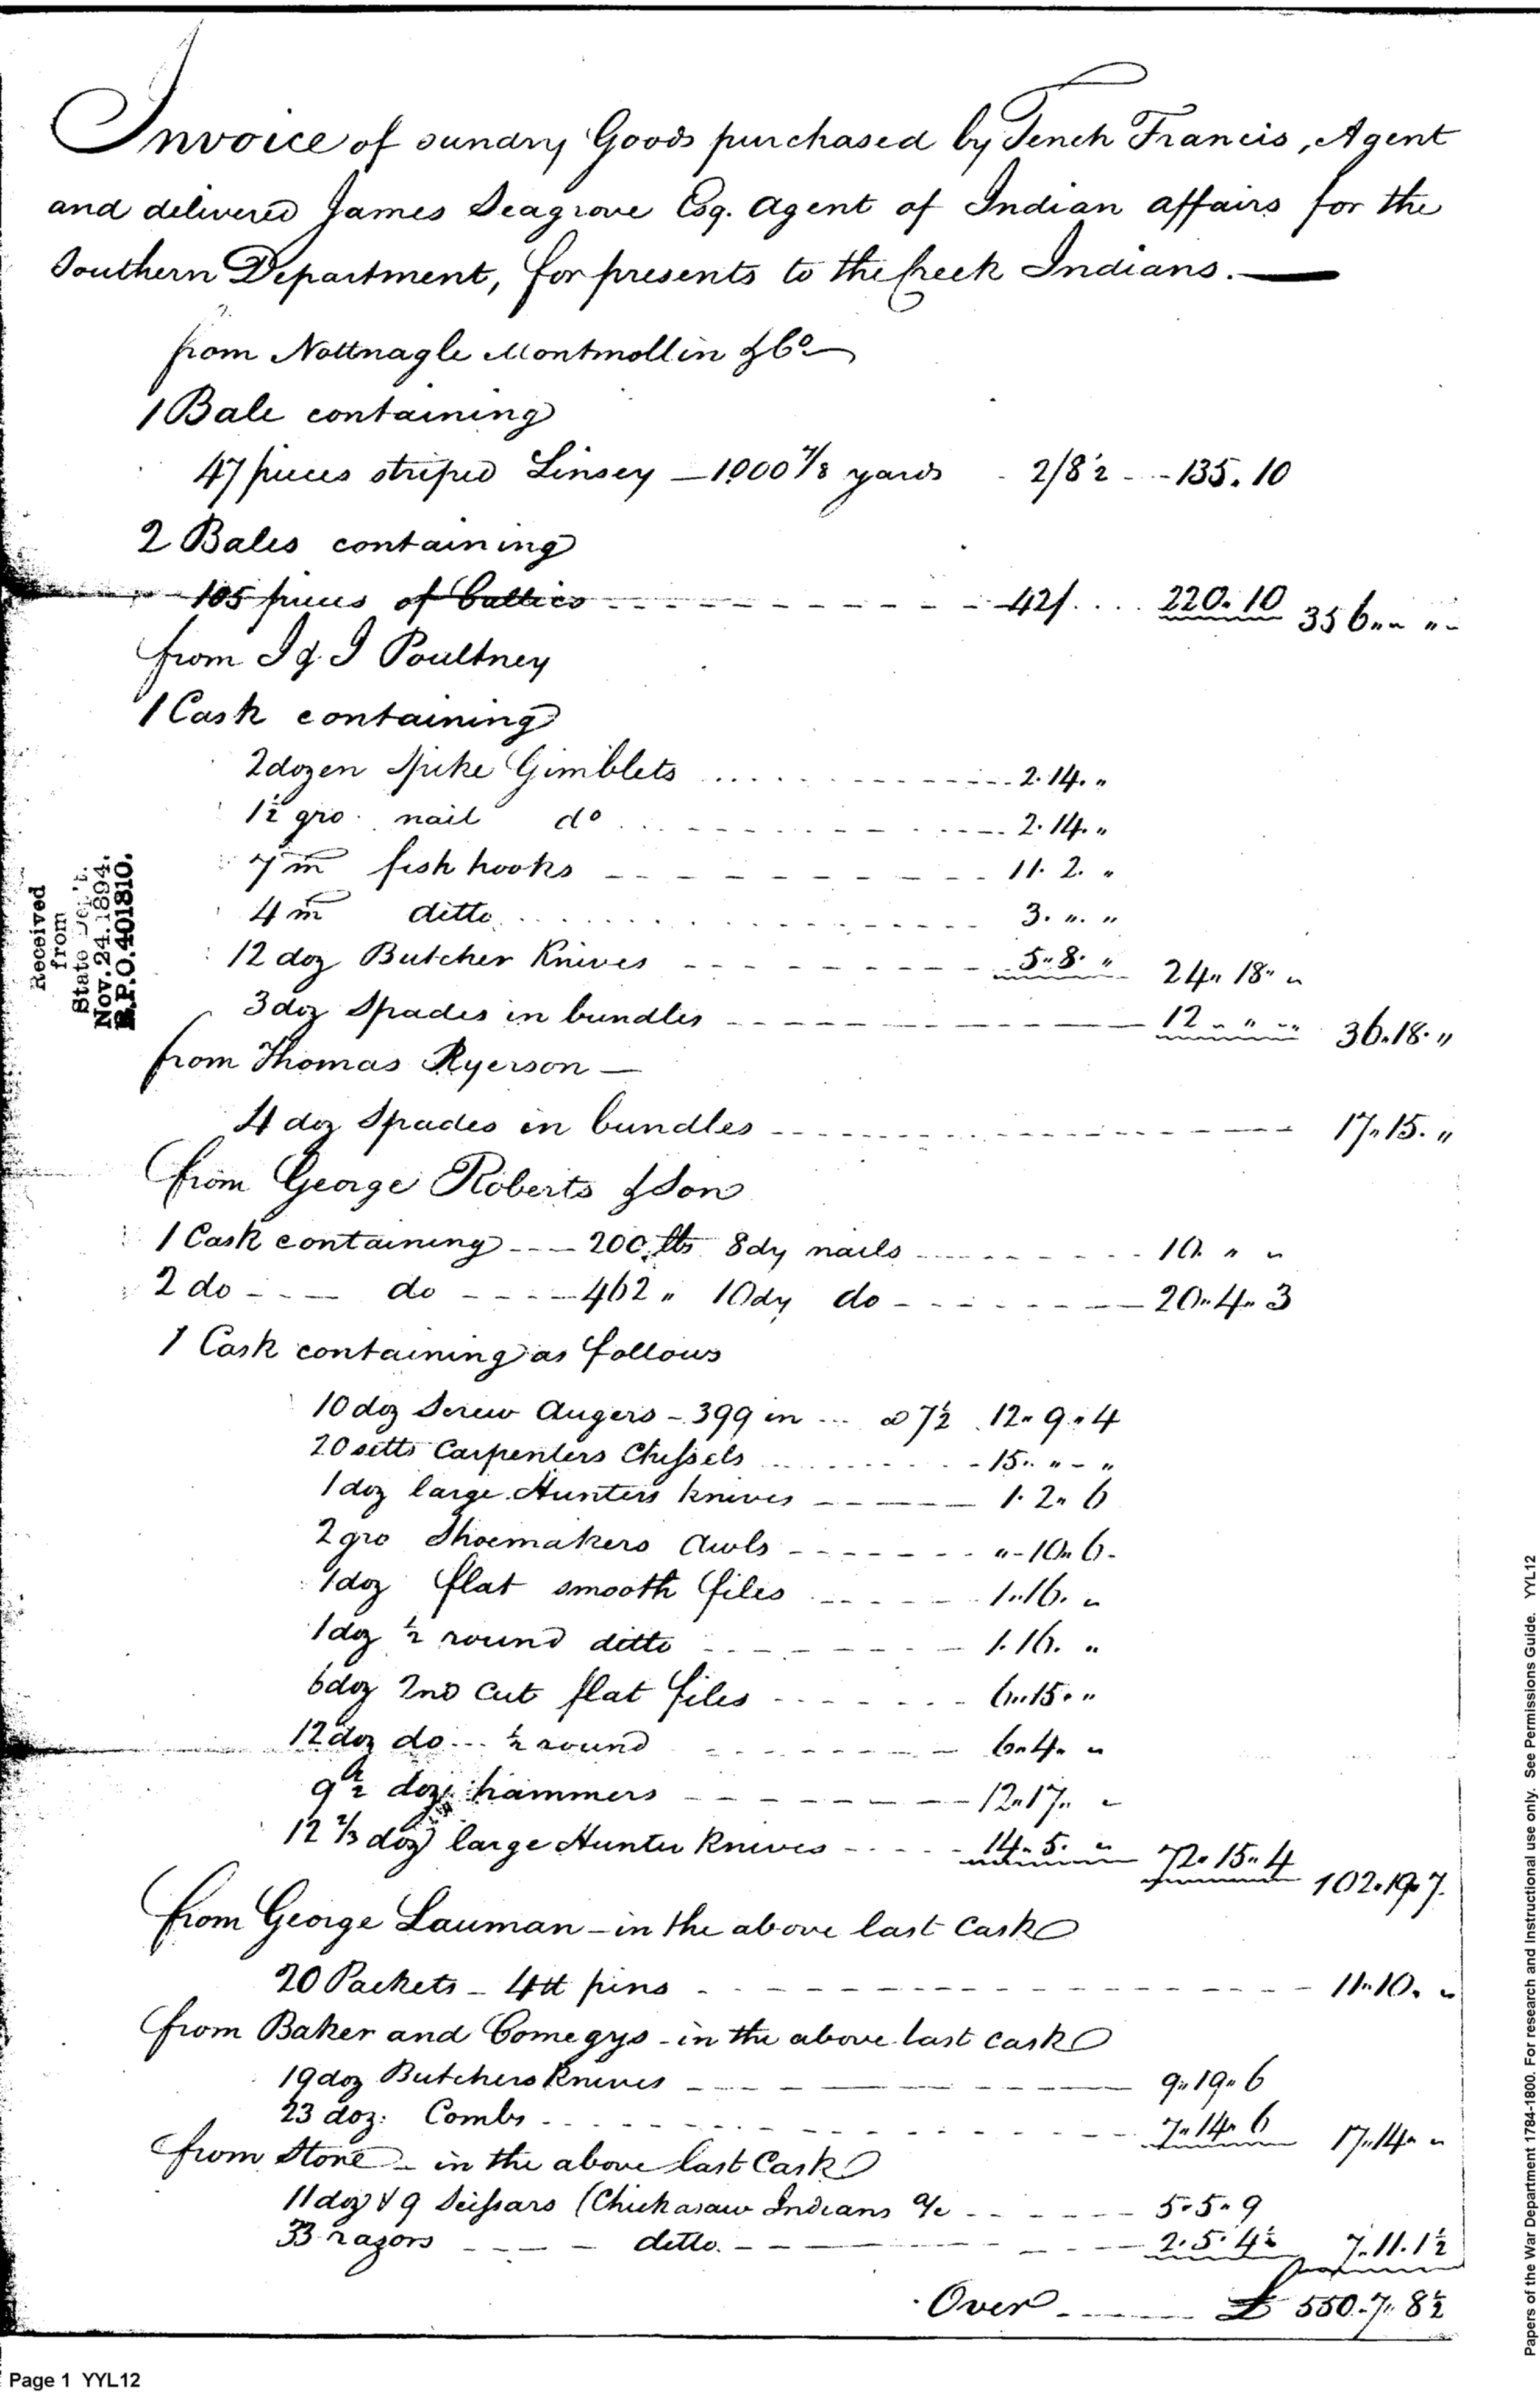 Invoice of sundry Goods purchased by Tench Francis, Agent
and delivered James Seagrove Esq. Agent of Indian affairs for the
Southern Department, for presents to the Creek Indians.
from Nottnagle Montmollin & Co
1 Bale containing
47 pieces striped Linsey - 1000 7/8 yards - 2/8½ - - 135. 10
2 Bales containing
105 pieces of Callico - - - 42/. . . . 220. 10 356 „ „
from I & I Poultney
1 Cask containing
2 dozen Spike Gimblets . . . 2. 14. „
1½ gro. nail do . . . 2. 14. „
7 m fish hooks - - - 11. 2. „
4 m ditto . . . 3. „. „
12 doz Butcher Knives - - - 5„ 8. „ 24„ 18„ „
3 doz Spades in bundles - - - 12 „ „ 36. 18. „
from Thomas Ryerson
4 doz Spades in bundles - - - 17„ 15. „
from George Roberts & Son
1 Cask containing - - - 200. lbs 8dy nails - - - 10. „ „
2 do - - - do - - - 462 „ 10dy do - - - 20„ 4„ 3
1 Cask containing as follows
10 doz Screw Augers - 399 in ... @ 7½ 12„ 9„ 4
20 setts Carpenters Chissels - - - 15. „ - „
1 doz large Hunters knives - - - 1. 2„ 6
2 gro Shoemakers Awls - - - „ - 10„ 6 -
1 doz flat smooth files - - - 1„ 16. „
1 doz ½ round ditto - - - 1. 16. „
6 doz 2nd Cut flat files - - - 6„ 15. „
12 doz do ... ½ round - - - 6„ 4„ „
9½ doz hammers - - - 12„ 17„ „
12 2/3 doz large Hunter Knives - - - 14„ 5. „ 72„ 15„ 4 102„ 19„ 7.
from George Lauman - in the above last Cask
20 Packets - 4 tt pins - - - 11„ 10. „
from Baker and Comegys - in the above last cask
19 doz Butchers Knives - - - 9„ 19„ 6
23 doz: Combs - - - 7„ 14„ 6 17„ 14„ „
from Store - in the above last Cask
11 doz & 9 Scissars (Chickasaw Indians a/c - - - 5„ 5„ 9
33 razors - - - ditto. - - - 2. 5. 4½ 7. 11. 1½
Over - - - £ 550. 7. 8½
Received
from
State Dep't.
Nov. 24. 1894.
R.P.O. 401810.
Papers of the War Department 1784-1800. For research and Instructional use only. See Permissions Guide. YYL12
Page 1 YYL12